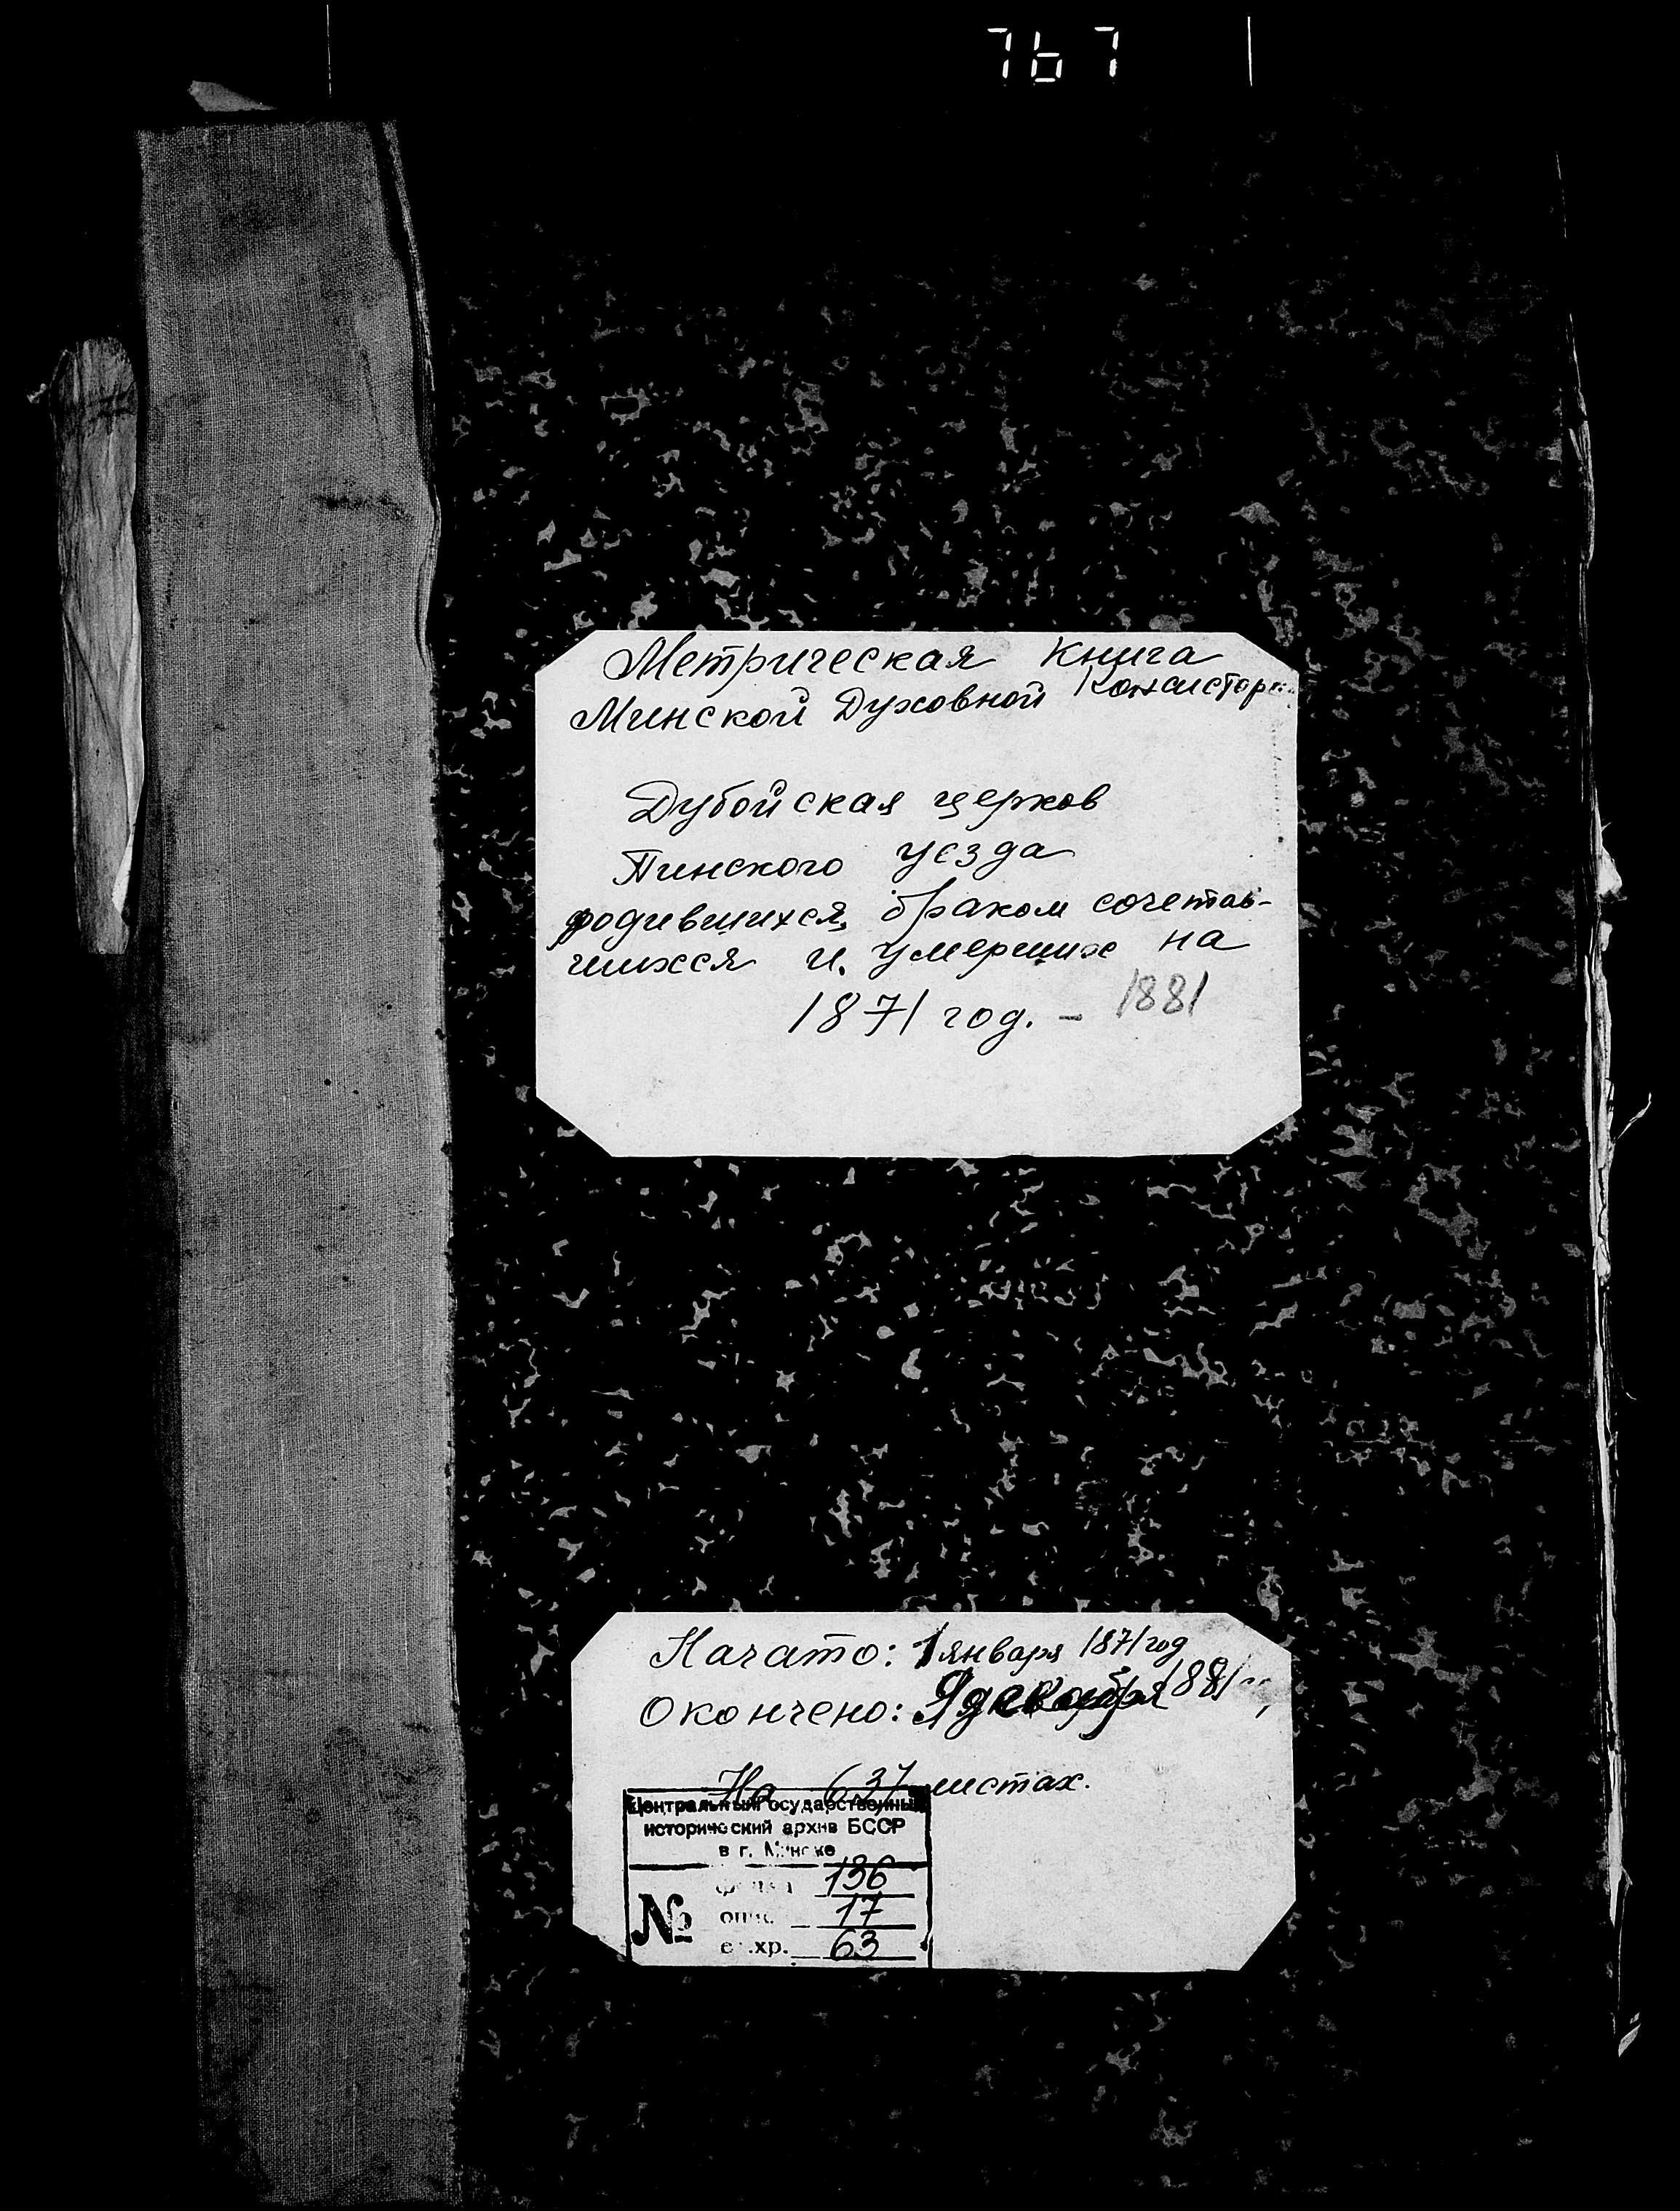 767
Метрическая Книга
Минской Духовной Консистори
Дубойская церков
Пинского уезда
родившихся, браком сочетав-
шихся и умерших на
1871 год. - 1881
Начато: 1 января 1871 год
Окончено: декабря 1881
На 637 листах.
Центральный Государственный
исторический архив БССР
в г. Минске
фонд 136
№ опис. 17
ед.хр. 63